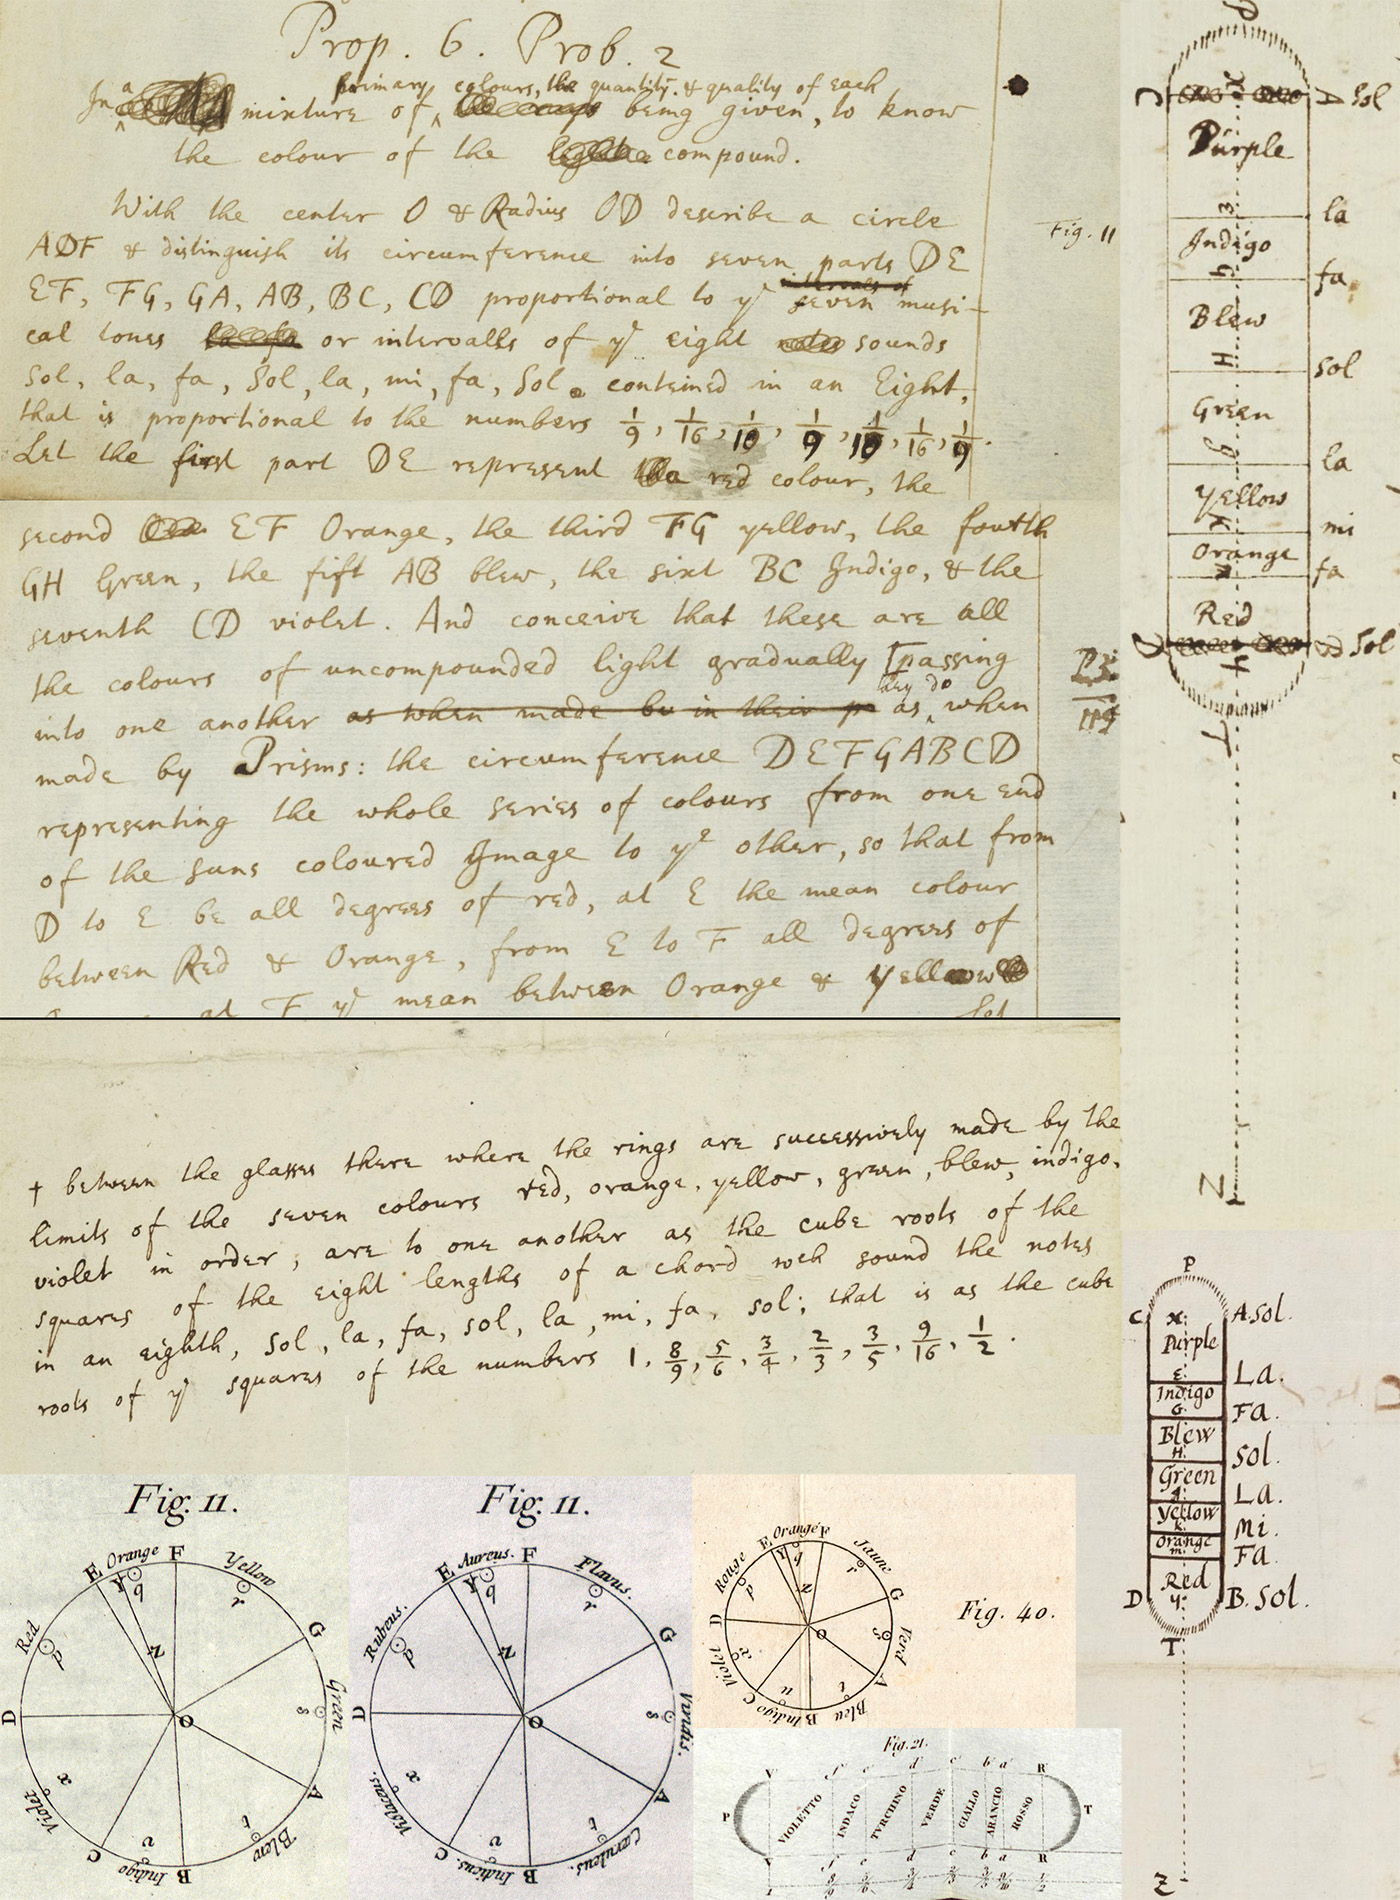 Prop. 6. Prob. 2
primary colours, the quantity & quality of each
In a mixture of being given, to know
the colour of the compound.
With the center O & Radius OD describe a circle
ADF & distinguish its circumference into seven parts DE
EF, FG, GA, AB, BC, CD proportional to yᵉ seven musi-
cal tones or intervalls of yᵉ eight sounds
Sol, la, fa, Sol, la, mi, fa, Sol, contained in an Eight,
that is proportional to the numbers 1/9, 1/16, 1/10, 1/9, 1/10, 1/16, 1/9.
Let the first part DE represent a red colour, the
Fig. 11
second EF Orange, the third FG yellow, the fourth
GH Green, the fift AB blew, the sixt BC Indigo, & the
seventh CD violet. And conceive that these are all
the colours of uncompounded light gradually [passing
they do
into one another as when made by in their p as when
made by Prisms: the circumference DEFGABCD
representing the whole series of colours from one end
of the suns coloured Image to yᵉ other, so that from
D to E be all degrees of red, at E the mean colour
between Red & Orange, from E to F all degrees of
at F yᵉ mean between Orange & Yellow
† between the glasses there where the rings are successively made by the
limits of the seven colours red, orange, yellow, green, blew, indigo,
violet in order, are to one another as the cube roots of the
squares of the eight lengths of a chord wch sound the notes
in an eighth, sol, la, fa, sol, la, mi, fa, sol; that is as the cube
roots of yᵉ squares of the numbers 1, 8/9, 5/6, 3/4, 2/3, 3/5, 9/16, 1/2.
Sol
Purple
la
Indigo
fa
Blew
sol
Green
la
Yellow
mi
Orange
fa
Red
Sol
P
C X A. Sol.
Purple
E La.
Indigo
G Fa.
Blew
H Sol.
Green
La.
Yellow
Mi.
Orange
Fa.
Red
D B. Sol.
T
Z
Fig. 11.
E Orange F Yellow
G
Red p q r
N
Green
s
D O
A
Violet x
Blew
t
C Indigo v B
Fig. 11.
E Aureus. F Flavus.
G
Rubeus. p q r
N
Viridis.
s
D O
A
Violaceus. x
Cæruleus.
t
C Indicus. v B
Fig. 40.
E Orangé F Jaune
G
Rouge p q r
Verd
s
D O
A
Violet
Bleu
t
C Indigo B
Fig. 21.
V f e d c b a R
P VIOLETTO INDACO TVRCHINO VERDE GIALLO ARANCIO ROSSO T
V f e d c b a R